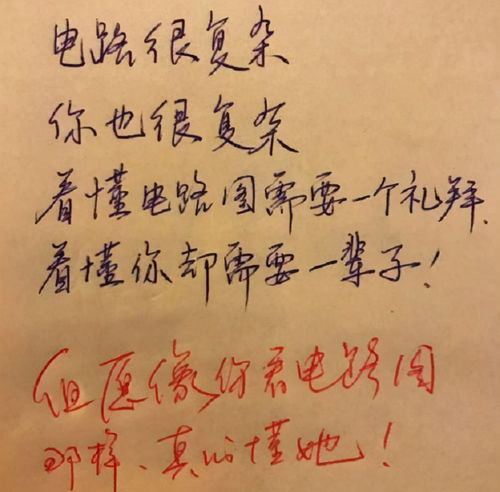 电路很复杂
你也很复杂
看懂电路图需要一个礼拜.
看懂你却需要一辈子！
但愿像你看电路图
那样、真的懂她！